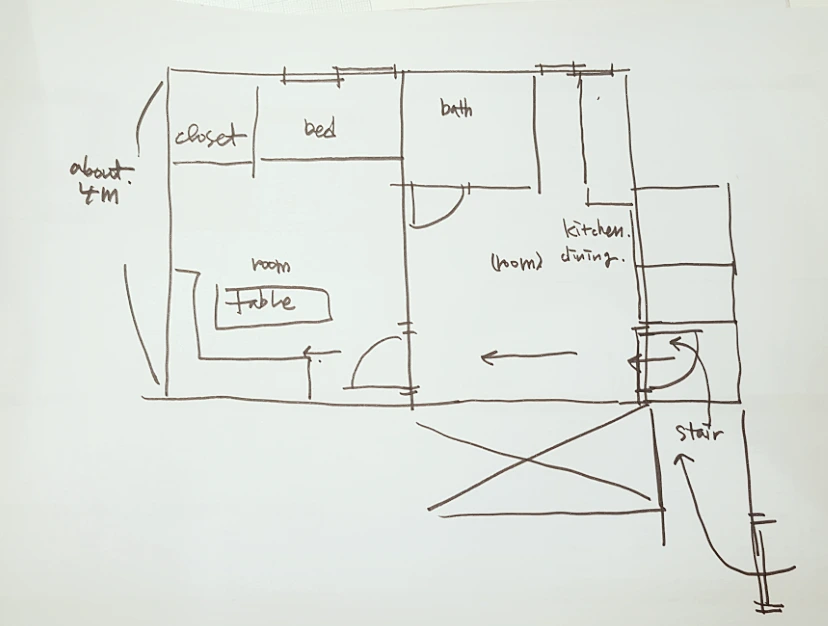 closet
bed
bath
about.
4m
kitchen.
(room) dining.
room
Table
stair